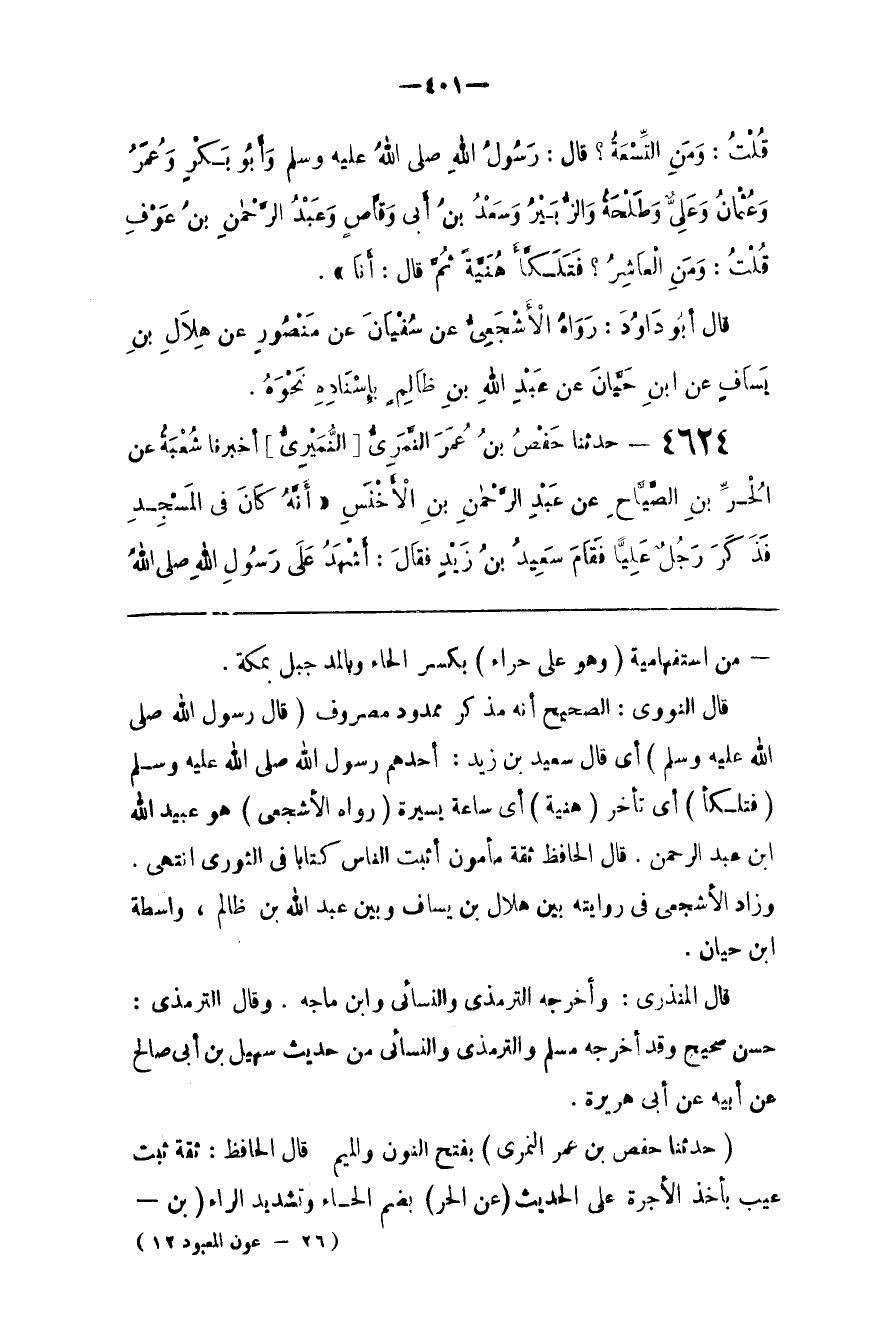 —٤٠١—
قُلْتُ : وَمَنِ التِّسْعَةُ ؟ قال : رَسُولُ اللهِ صلى اللهُ عليه وسلم وَأَبُو بَكْرٍ وَعُمَرُ
وَعُثْمَانُ وَعَلِيٌّ وَطَلْحَةُ وَالزُّبَيْرُ وَسَعْدُ بنُ أَبى وَقَّاصٍ وَعَبْدُ الرَّحْمٰنِ بنُ عَوْفٍ
قُلْتُ : وَمَنِ الْعَاشِرُ ؟ فَتَلَكَّأَ هُنَيَّةً ثُمَّ قال : أَنَا » .
قال أبُو دَاوُدَ : رَوَاهُ الْأَشْجَعِىُّ عن سُفْيَانَ عن مَنْصُورٍ عن هِلَالِ بنِ
يَسَافٍ عن ابنِ حَيَّانَ عن عَبْدِ اللهِ بنِ ظَالِمٍ بِإِسْنَادِهِ نَحْوَهُ .
٤٦٢٤ — حدثنا حَفْصُ بنُ عُمَرَ النَّمَرِىُّ [ النُّمَيْرِىُّ ] أخبرنا شُعْبَةُ عن
الْحُرِّ بنِ الصَّيَّاحِ عن عَبْدِ الرَّحْمٰنِ بنِ الْأَخْنَسِ « أَنَّهُ كَانَ فى المَسْجِدِ
فَذَكَرَ رَجُلٌ عَلِيًّا فَقَامَ سَعِيدُ بنُ زَيْدٍ فقَالَ : أَشْهَدُ عَلَى رَسُولِ اللهِ صلى اللهُ
— من استفهامية ( وهو على حراء ) بكسر الحاء وبالمد جبل بمكة .
قال النووى : الصحيح أنه مذكر ممدود مصروف ( قال رسول الله صلى
الله عليه وسلم ) أى قال سعيد بن زيد : أحدهم رسول الله صلى الله عليه وسلم
( فتلكأ ) أى تأخر ( هنية ) أى ساعة يسيرة ( رواه الأشجعى ) هو عبيد الله
ابن عبد الرحمن . قال الحافظ ثقة مأمون أثبت الناس كتابا فى الثورى انتهى .
وزاد الأشجعى فى روايته بين هلال بن يساف وبين عبد الله بن ظالم ، واسطة
ابن حيان .
قال المنذرى : وأخرجه الترمذى والنسائى وابن ماجه . وقال الترمذى :
حسن صحيح وقد أخرجه مسلم والترمذى والنسائى من حديث سهيل بن أبى صالح
عن أبيه عن أبى هريرة .
( حدثنا حفص بن عمر النمرى ) بفتح النون والميم قال الحافظ : ثقة ثبت
عيب بأخذ الأجرة على الحديث (عن الحر) بضم الحاء وتشديد الراء ( بن —
( ٢٦ — عون المعبود ١٢ )